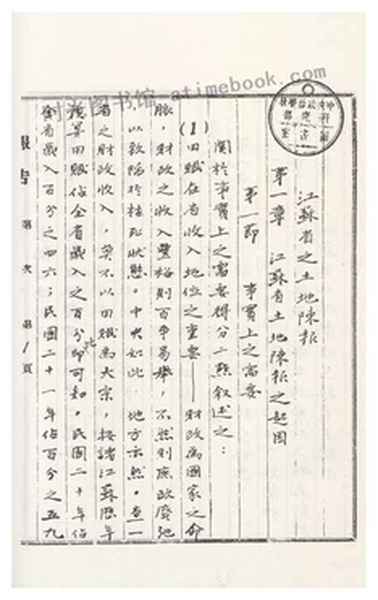 时光图书馆-atimebook.com
中央政治學校
研究部
圖書室
江蘇省之土地陳報
第一章 江蘇省土地陳報之起因
第一節 事實上之需要
關於事實上之需要得分二點叙述之:
(1)田賦在省收入地位之重要——財政為國家之命
脈,財政之收入豐裕則百事易舉,不然則庶政廢弛
以致陷於枯死狀態。中央如此,地方亦然。查一
省之財政收入,莫不以田賦為大宗,按諸江蘇歷年
預算田賦佔全省歲入之百分比即可知。民國二十年佔
全省歲入百分之四六;民國二十一年佔百分之五九
報告 第 次 第1頁